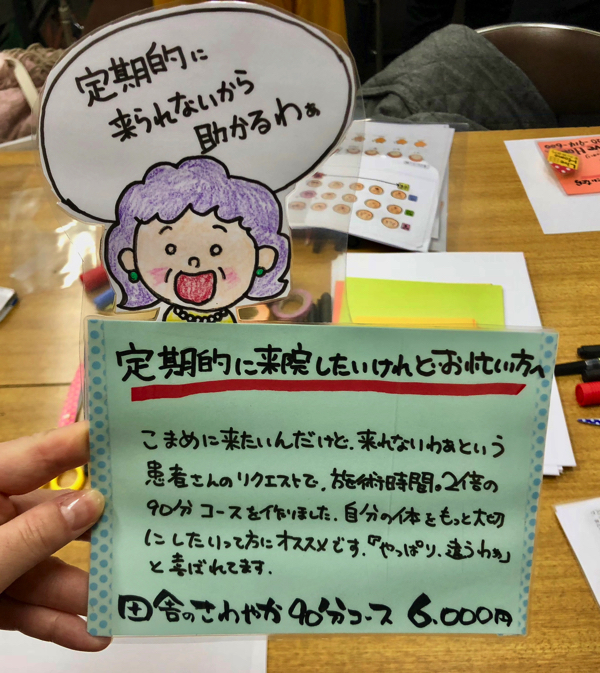 定期的に
来られないから
助かるわぁ
定期的に来院したいけれどお忙しい方へ
こまめに来たいんだけど、来れないわぁという
患者さんのリクエストで、施術時間。2倍の
90分コースを作りました。自分の体をもっと大切
にしたいって方にオススメです。『やっぱり、違うわぁ』
と喜ばれてます。
田舎のさわやか90分コース 6.000円